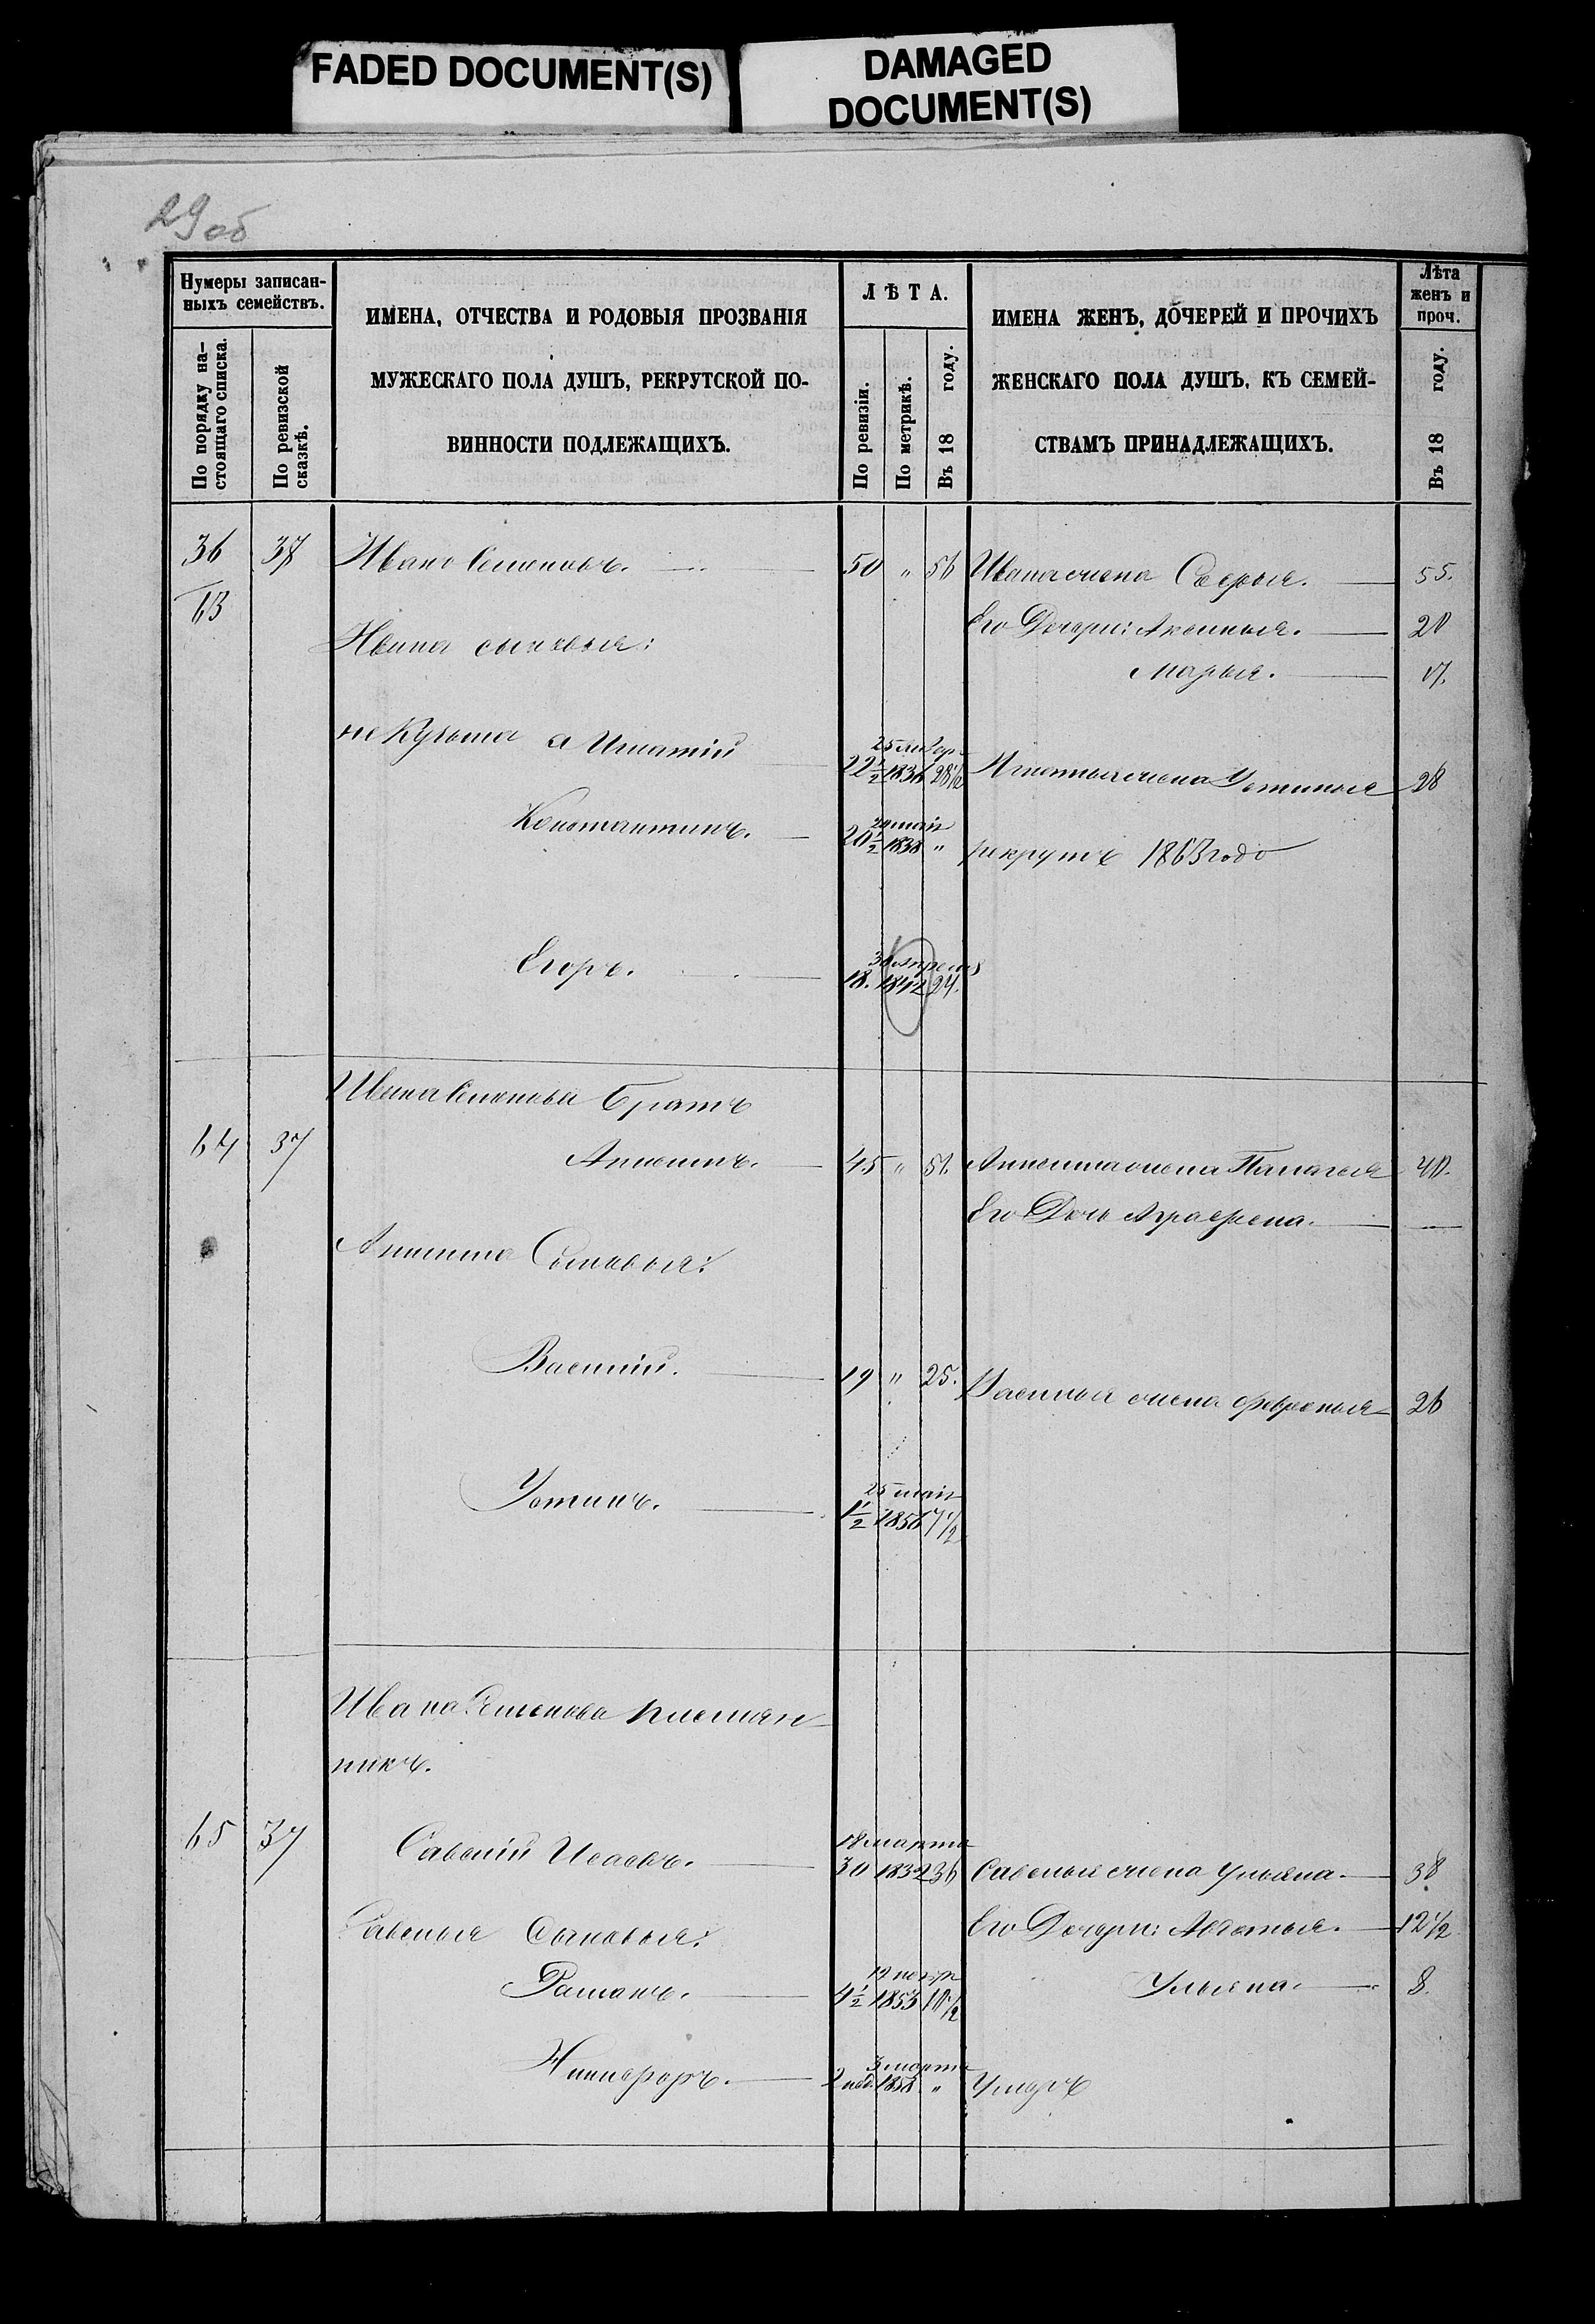 FADED DOCUMENT(S)
DAMAGED
DOCUMENT(S)
29об
Нумеры записан-
ныхъ семействъ.
По порядку на-
стоящаго списка.
По ревизской
сказкѣ.
ИМЕНА, ОТЧЕСТВА И РОДОВЫЯ ПРОЗВАНІЯ
МУЖЕСКАГО ПОЛА ДУШЪ, РЕКРУТСКОЙ ПО-
ВИННОСТИ ПОДЛЕЖАЩИХЪ.
ЛѢТА.
По ревизіи.
По метрикѣ.
Въ 18 году.
ИМЕНА ЖЕНЪ, ДОЧЕРЕЙ И ПРОЧИХЪ
ЖЕНСКАГО ПОЛА ДУШЪ, КЪ СЕМЕЙ-
СТВАМЪ ПРИНАДЛЕЖАЩИХЪ.
Лѣта
женъ и
проч.
Въ 18 году.
36 37 Иванъ Семеновъ. 50 " 56 Ивана жена Софья. 55.
63 Его Дочери: Аксинья. 20
Ивана сыновья:
Марья. 17.
не Кузьма а Игнатій 22½ 1836 28½ Игнатья жена Устинья 28
20 мая
Константинъ. 20½ 1838 " рекрутъ 1863 года
30 апреля
Егоръ. 18. 1842 24.
Ивана Семенова Братъ
64 37 Анисимъ. 45 " 51. Анисима жена Палагея 40.
Его Дочь Аграфена.
Анисима Сыновья:
Василій. 19 " 25. Василья жена Февронья 26
25 мая
Устинъ. 1½ 1856 7½
Ивана Семенова племян-
никъ.
18 марта
65 37 Савелій Исаевъ. 30 1832 36 Савелья жена Ульяна. 38
Савелья Сыновья: Его Дочери: Авдотья. 12½
Раманъ. 4½ 1853 10½ Ульяна. 8.
3 марта
Никифоръ. 2 нед. 1858 " Умеръ